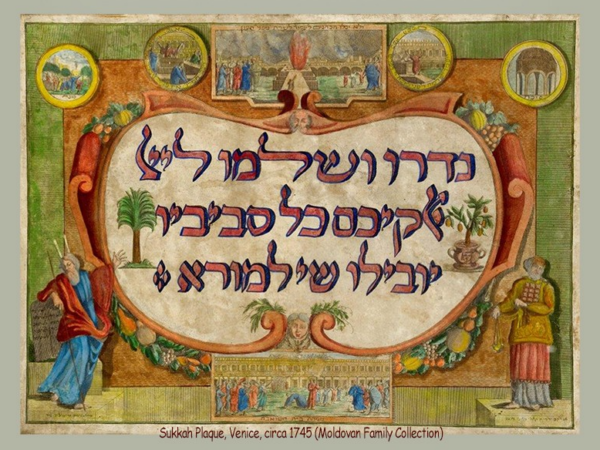 נדרו ושלמו ליי
ﭏקיכם כל סביביו
יובילו שי למורא
Sukkah Plaque, Venice, circa 1745 (Moldovan Family Collection)